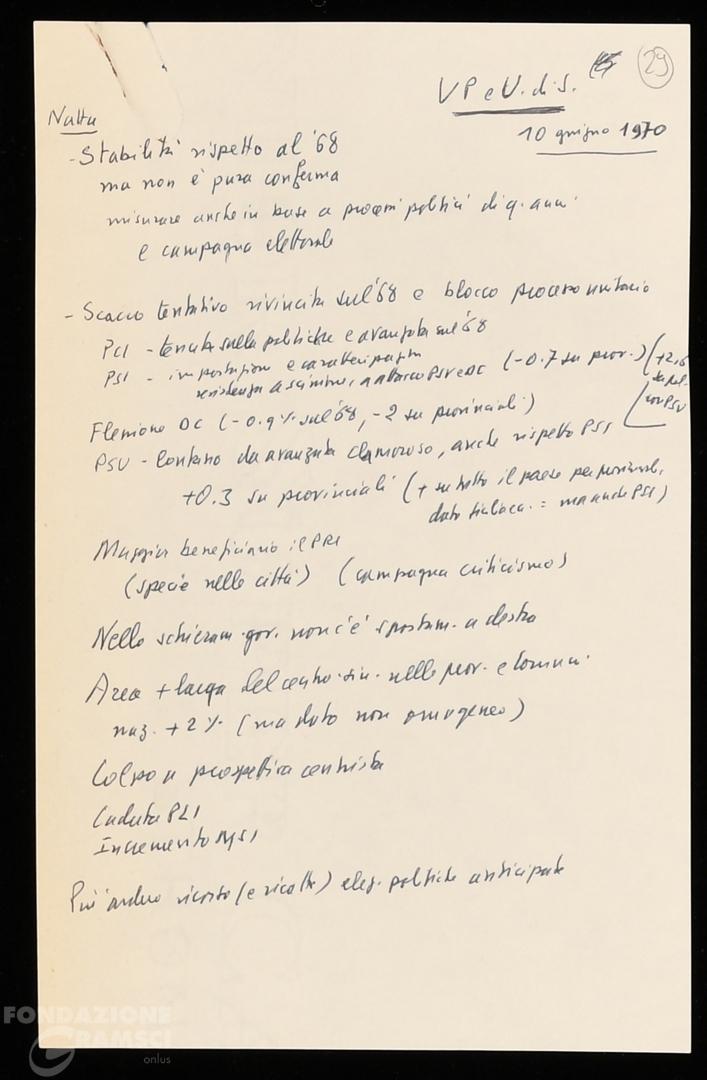 29
VP e U. di S.
10 giugno 1970
Natta
- Stabilità rispetto al '68
ma non è pura conferma
misurare anche in base a processi politici di q. anni
e campagna elettorale
- Scacco tentativo rivincita sul '68 e blocco processo unitario
PCI - tenuta sulle politiche e avanzata sul '68
PSI - impostazione e caratterizzazione
resistenza a scissione, attacco PSU e DC (-0.7 su prov.) (+2.6
su pol.
con PSU
Flessione DC (-0.9% sul '68, -2 su provinciali)
PSU - lontano da avanzata clamorosa, anche rispetto PSI
+0.3 su provinciali (+ su tutto il paese per
dato = ma anche PSI)
Maggior beneficiario il PRI
(specie nelle città) (campagna criticismo)
Nello schieram. gov. non c'è spostam. a destra
Area + larga del centro-sin. nelle prov. e comuni
naz. + 2% (ma dato non omogeneo)
Colpo a prospettiva centrista
Caduta PLI
Incremento MSI
Più arduo ricorso (e ricatto) elez. politiche anticipate
FONDAZIONE
GRAMSCI
onlus